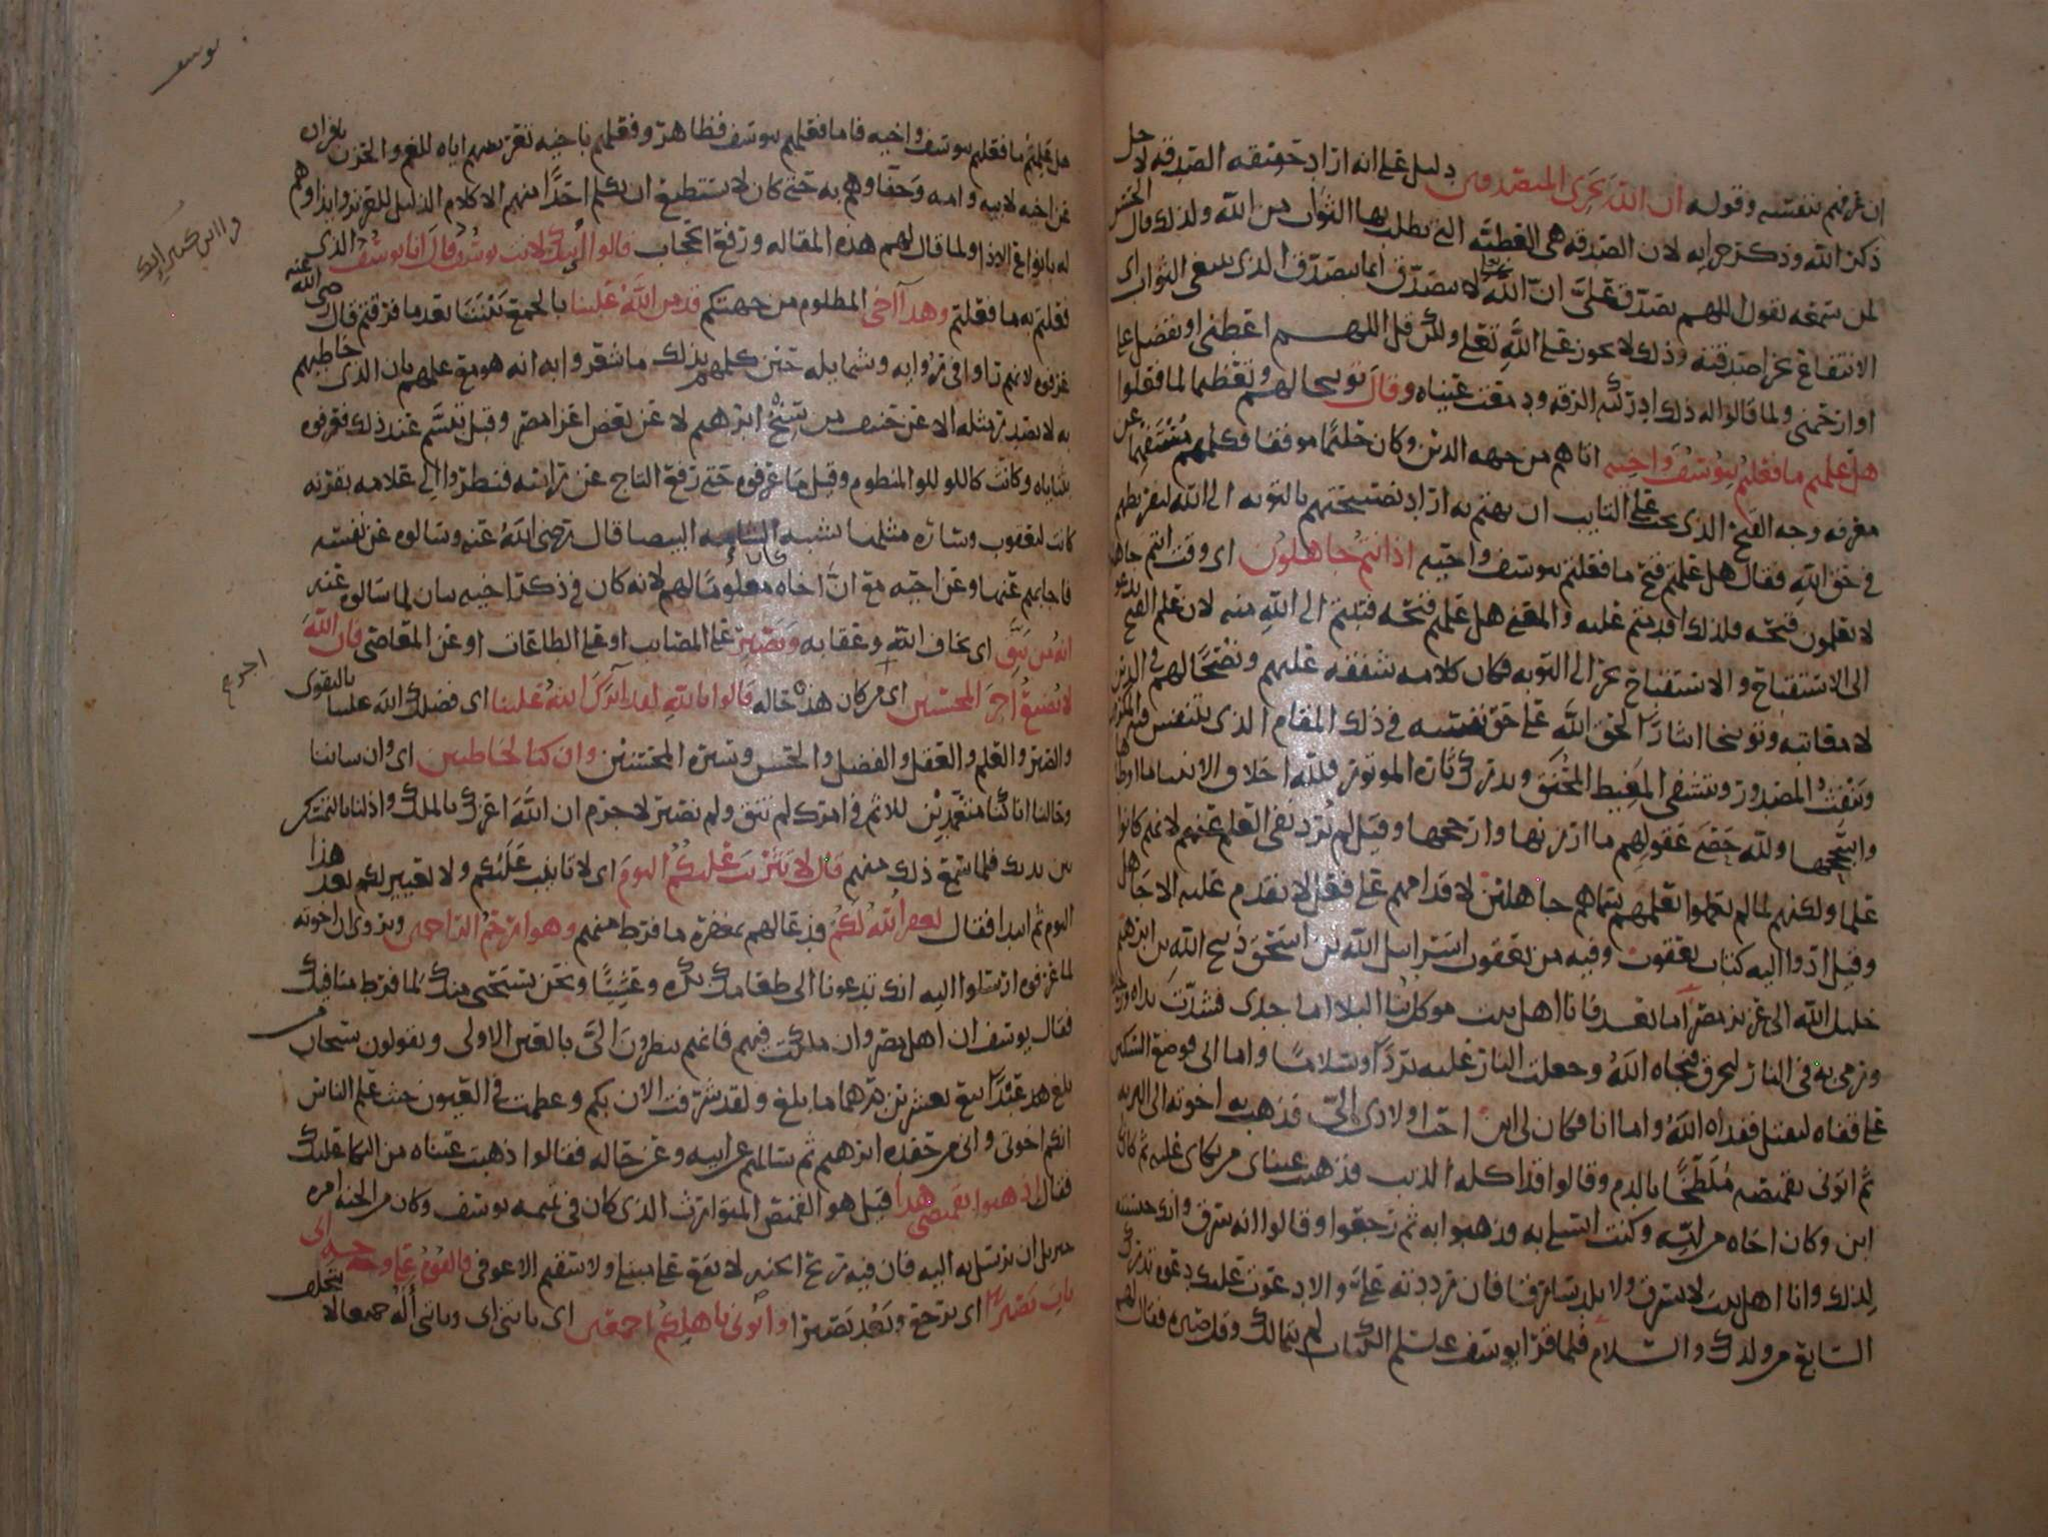 ان عرفهم بنفسه وقوله ان الله يجزى المتصدقين دليل على انه اراد حقيقه الصدقه لاجل
ذكر الله وذكر جزايه لان الصدقه هى العطيّه التى يطلب بها الثواب من الله ولذلك قال الحسن
لمن سمعه يقول اللهم تصدّق علىّ انّ الله لا يتصدّق انما يتصدّق الذى يبتغى الثواب اى
الانتفاع بجزا صدقته وذلك لا يجوز على اللهِ تعلى ولكن قل اللهم اعطنى او تفضل علىّ
او ارحمنى ولما قالوا له ذلك ادركته الرقه ودمعت عيناه وقال توبيخا لهم وتعظيما لما فعلوا
هل علمتم ما فعلتم بيوسف واخيه اتاهم من جهه الدين وكان حليما موفقا فكلمهم مستفهما عن
معرفه وجه القبح الذى يجب على التايب ان يهتم به اراد نصيحتهم بالتوبه الى الله لتفريطهم
فى حق الله فقال هل علمتم قبح ما فعلتم بيوسف واخيه اذ انتم جاهلون اى وقت انتم جاهلون
لا تعلمون قبحه فلذلك اقدمتم عليه والمعنى هل علمتم قبحه فتبتم الى اللهِ منه لان علم القبح يدعو
الى الاستقباح والاستقباح يجر الى التوبه فكان كلامه شفقه عليهم ونصحًا لهم فى الدين
لا معاتبه وتوبيخا ايثارًا لحق الله على حق نفسه فى ذلك المقام الذى يتنفس فيه المكروب
وينفث المصدور ويتشفى المغيظ المحنق ويدرك ثاره الموتور فلله اخلاق الانبيا ما اوطاها
واسجحها ولله حصى عقولهم ما ارزنها وارجحها وقيل لم يُرد نفى العلم عنهم لانهم كانوا
علما ولكنهم لما لم يعملوا بعلمهم سماهم جاهلين لاقدامهم على فعل لا يقدم عليه الا جاهل
وقيل ادّوا اليه كتاب يعقوب وفيه من يعقوب اسرايل الله بن اسحق ذبيح اللهِ بن ابرهيم
خليل الله الى عزيز مصر اما بعد فانا اهل بيت موكل بنا البلا اما جدى فشدّت يداه ورجلاه
ورمى به فى النار ليحرق فنجاه اللهُ وجعلت النار عليه بردًا وسلامًا واما ابى فوضع السكين
على قفاه ليقتل ففداه اللهُ واما انا فكان لى ابن احبّ اولادى الىّ فذهب به اخوته الى البريه
ثم اتونى بقميصه مُلطّخًا بالدم وقالوا قد اكله الذيب فذهبت عيناى من بكاى عليه ثم كان لى
ابن وكان اخاه من امّه وكنت اتسلى به فذهبوا به ثم رجعوا وقالوا انه سرق وانك حبسته
لذلك وانا اهل بيت لا نسرق ولا نلد سارقا فان رددته علىّ والا دعوت عليك دعوه تدرك
السّابع من ولدك والسّلام فلما قرا يوسف عليه السلم الكتاب لم يتمالك وعيل صبره فقال لهم
يوسف
هل علمتم ما فعلتم بيوسف واخيه فاما فعلهم بيوسف فظاهر وفعلهم باخيه تعريضهم اياه للغم والحزن بافراده
عن اخيه لابيه وامه وجفاوهم به حتى كان لا يستطيع ان يكلم احدًا منهم الا كلام الذليل للعزيز وايذاوهم
له بانواع الاذا ولما قال لهم هذه المقاله ورفع الحجاب قالوا اينّك لانت يوسف قال انا يوسف الذى
فعلتم به ما فعلتم وهذا اخى المظلوم من جهتكم قد من الله علينا بالجمع بيننا بعد ما فرقتم قال رضى الله عنه
عرفوه لانهم راوا فى روايه وشمايله حين كلمهم بذلك ما شعروا به انه هو مع علمهم بان الذى خاطبهم
به لا يصدر مثله الا عن حنيف من سنخ ابرهيم لا عن بعض اعزا مصر وقيل تبسّم عند ذلك فعرفوه
بثناياه وكانت كاللولو المنظوم وقيل ما عرفوه حتى رفع التاج عن راسه فنظروا الى علامه بقرنه
كانت ليعقوب وساره مثلها تشبه الشامه البيضا قال رضى اللهُ عنه وسالوه عن نفسه
فاجابهم عنها وعن اخيه مع انّ اخاه كان معلومًا لهم لانه كان فى ذكر اخيه بيان لما سالوه عنه
انه من يتق اى يخاف الله وعقابه ويصبر على المصايب او على الطاعات او عن المعاصى فان الله
لا يضيع اجر المحسنين اى من كان هذه حاله قالوا تاللهِ لقد اثرك اللهُ علينا اى فضلك الله علينا بالتقوى
والصبر والعلم والعقل والفضل والحسن وسيره المحسنين وان كنا لخاطين اى وان شاننا
وحالنا انا كنا متعمّدين للاثم فى امرك لم نتق ولم نصبر لا جرم ان اللهَ اعزك بالملك واذلنا بالتمسكن
بين يديك فلما سمع ذلك منهم قال لا تثريب عليكم اليوم اى لا تانيب عليكم ولا تعيير لكم بعد هذا
اليوم ثم ابتدا فقال يغفر الله لكم فدعا لهم بمغفرة ما فرط منهم وهو ارحم الراحمين ويروى ان اخوته
لما عرفوه ارسلوا اليه انك تدعونا الى طعامك بكره وعشيّا ونحن نستحى منك لما فرط منا فيك
فقال يوسف ان اهل مصر وان ملكت فيهم فانهم ينظرون الىّ بالعين الاولى ويقولون سبحان من
بلغ عبدًا بيع بعشرين درهما ما بلغ ولقد شرفت الان بكم وعظمت فى العيون حيث علم الناس
انكم اخوتى وانى من حفده ابرهيم ثم سالهم عن ابيه وعن حاله فقالوا ذهبت عيناه من البكا عليك
فقال اذهبوا بقميصى هذا قيل هو القميص المتوارث الذى كان فى تميمه يوسف وكان من الجنه امره
جبريل ان يرسل به اليه فان فيه ريح الجنه لا يقع على مبتلى ولا سقيم الا عوفى فالقوه على وجه ابى
يات بصيرا اى يرجع ويعُد بصيرا واتونى باهلكم اجمعين اى ياتى اى وياتى اله جميعا لا يتخلف